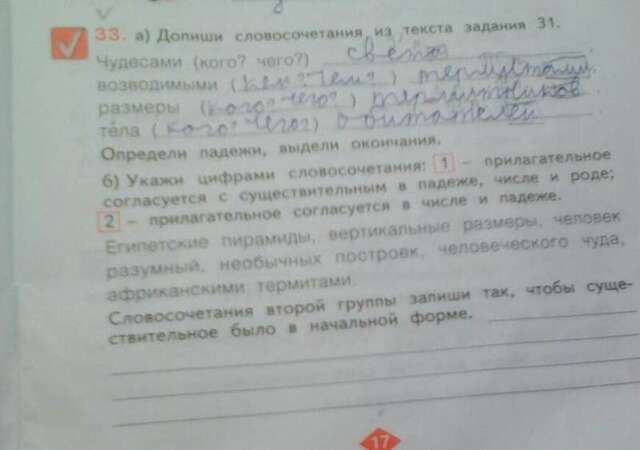 33. а) Допиши словосочетания из текста задания 31.
Чудесами (кого? чего?) света
возводимыми (кем? чем?) термитами
размеры (кого? чего?) термитников
тела (кого? чего?) обитателей
Определи падежи, выдели окончания.
б) Укажи цифрами словосочетания: 1 – прилагательное
согласуется с существительным в падеже, числе и роде;
2 – прилагательное согласуется в числе и падеже.
Египетские пирамиды, вертикальные размеры, человек
разумный, необычных построек, человеческого чуда,
африканскими термитами.
Словосочетания второй группы запиши так, чтобы суще-
ствительное было в начальной форме.
17